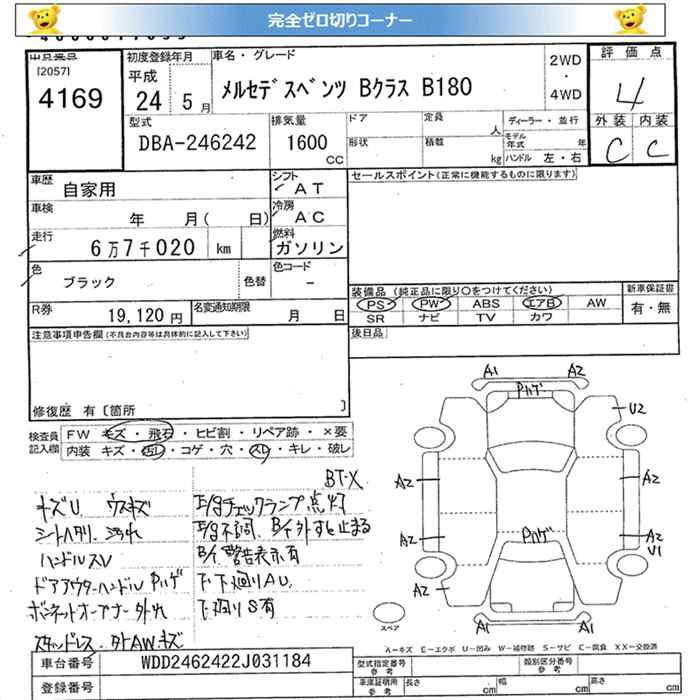 完全ゼロ切りコーナー
出品番号
[2057]
4169
初度登録年月
平成
24 年 5 月
車名・グレード
メルセデスベンツ Bクラス B180
2WD
・
4WD
評価点
4
外装 内装
C C
型式
DBA-246242
排気量
1600
CC
ドア
形状
定員
人
積載
kg
ディーラー・並行
モデル年式 年
ハンドル 左・右
車歴
自家用
シフト
AT
車検
年 月( 日)
冷房
AC
走行
6万7千020 km
燃料
ガソリン
色
ブラック
色替
色コード
-
R券
19,120 円
名変通知期限
月 日
セールスポイント(正常に機能するものに限ります)
装備品(純正品に限り○をつけてください)
新車保証書
PS PW ABS エアB AW
有・無
SR ナビ TV カワ
後日品
注意事項申告欄(不具合内容等は具体的に記入して下さい)
修復歴 有〔箇所 〕
検査員記入欄
FW キズ・飛石・ヒビ割・リペア跡・×要
内装 キズ・ ・コゲ・穴・ ・キレ・破レ
BT-X
キズU ウスキズ
シートヘタリ、こすれ
ハンドルスレ
ドアアウターハンドルPハゲ
ボンネットオープナー外れ
スタッドレス、外AWキズ
E/gチェックランプ点灯
E/g不調、B/Y外すと止まる
B/Y警告表示有
下、下廻りAU
下廻りS有
A1 A2
Pハゲ
U2
A2 A2
A2 A2
U1
Pハゲ
A2
A1 A1
スペア
A-キズ E-エクボ U-凹み W-補修跡 S-サビ C-腐食 XX-交換済
車台番号
WDD2462422J031184
登録番号
型式指定番号
参考
類別区分番号
参考
車庫証明用
参考
長さ cm
幅 cm
高さ cm